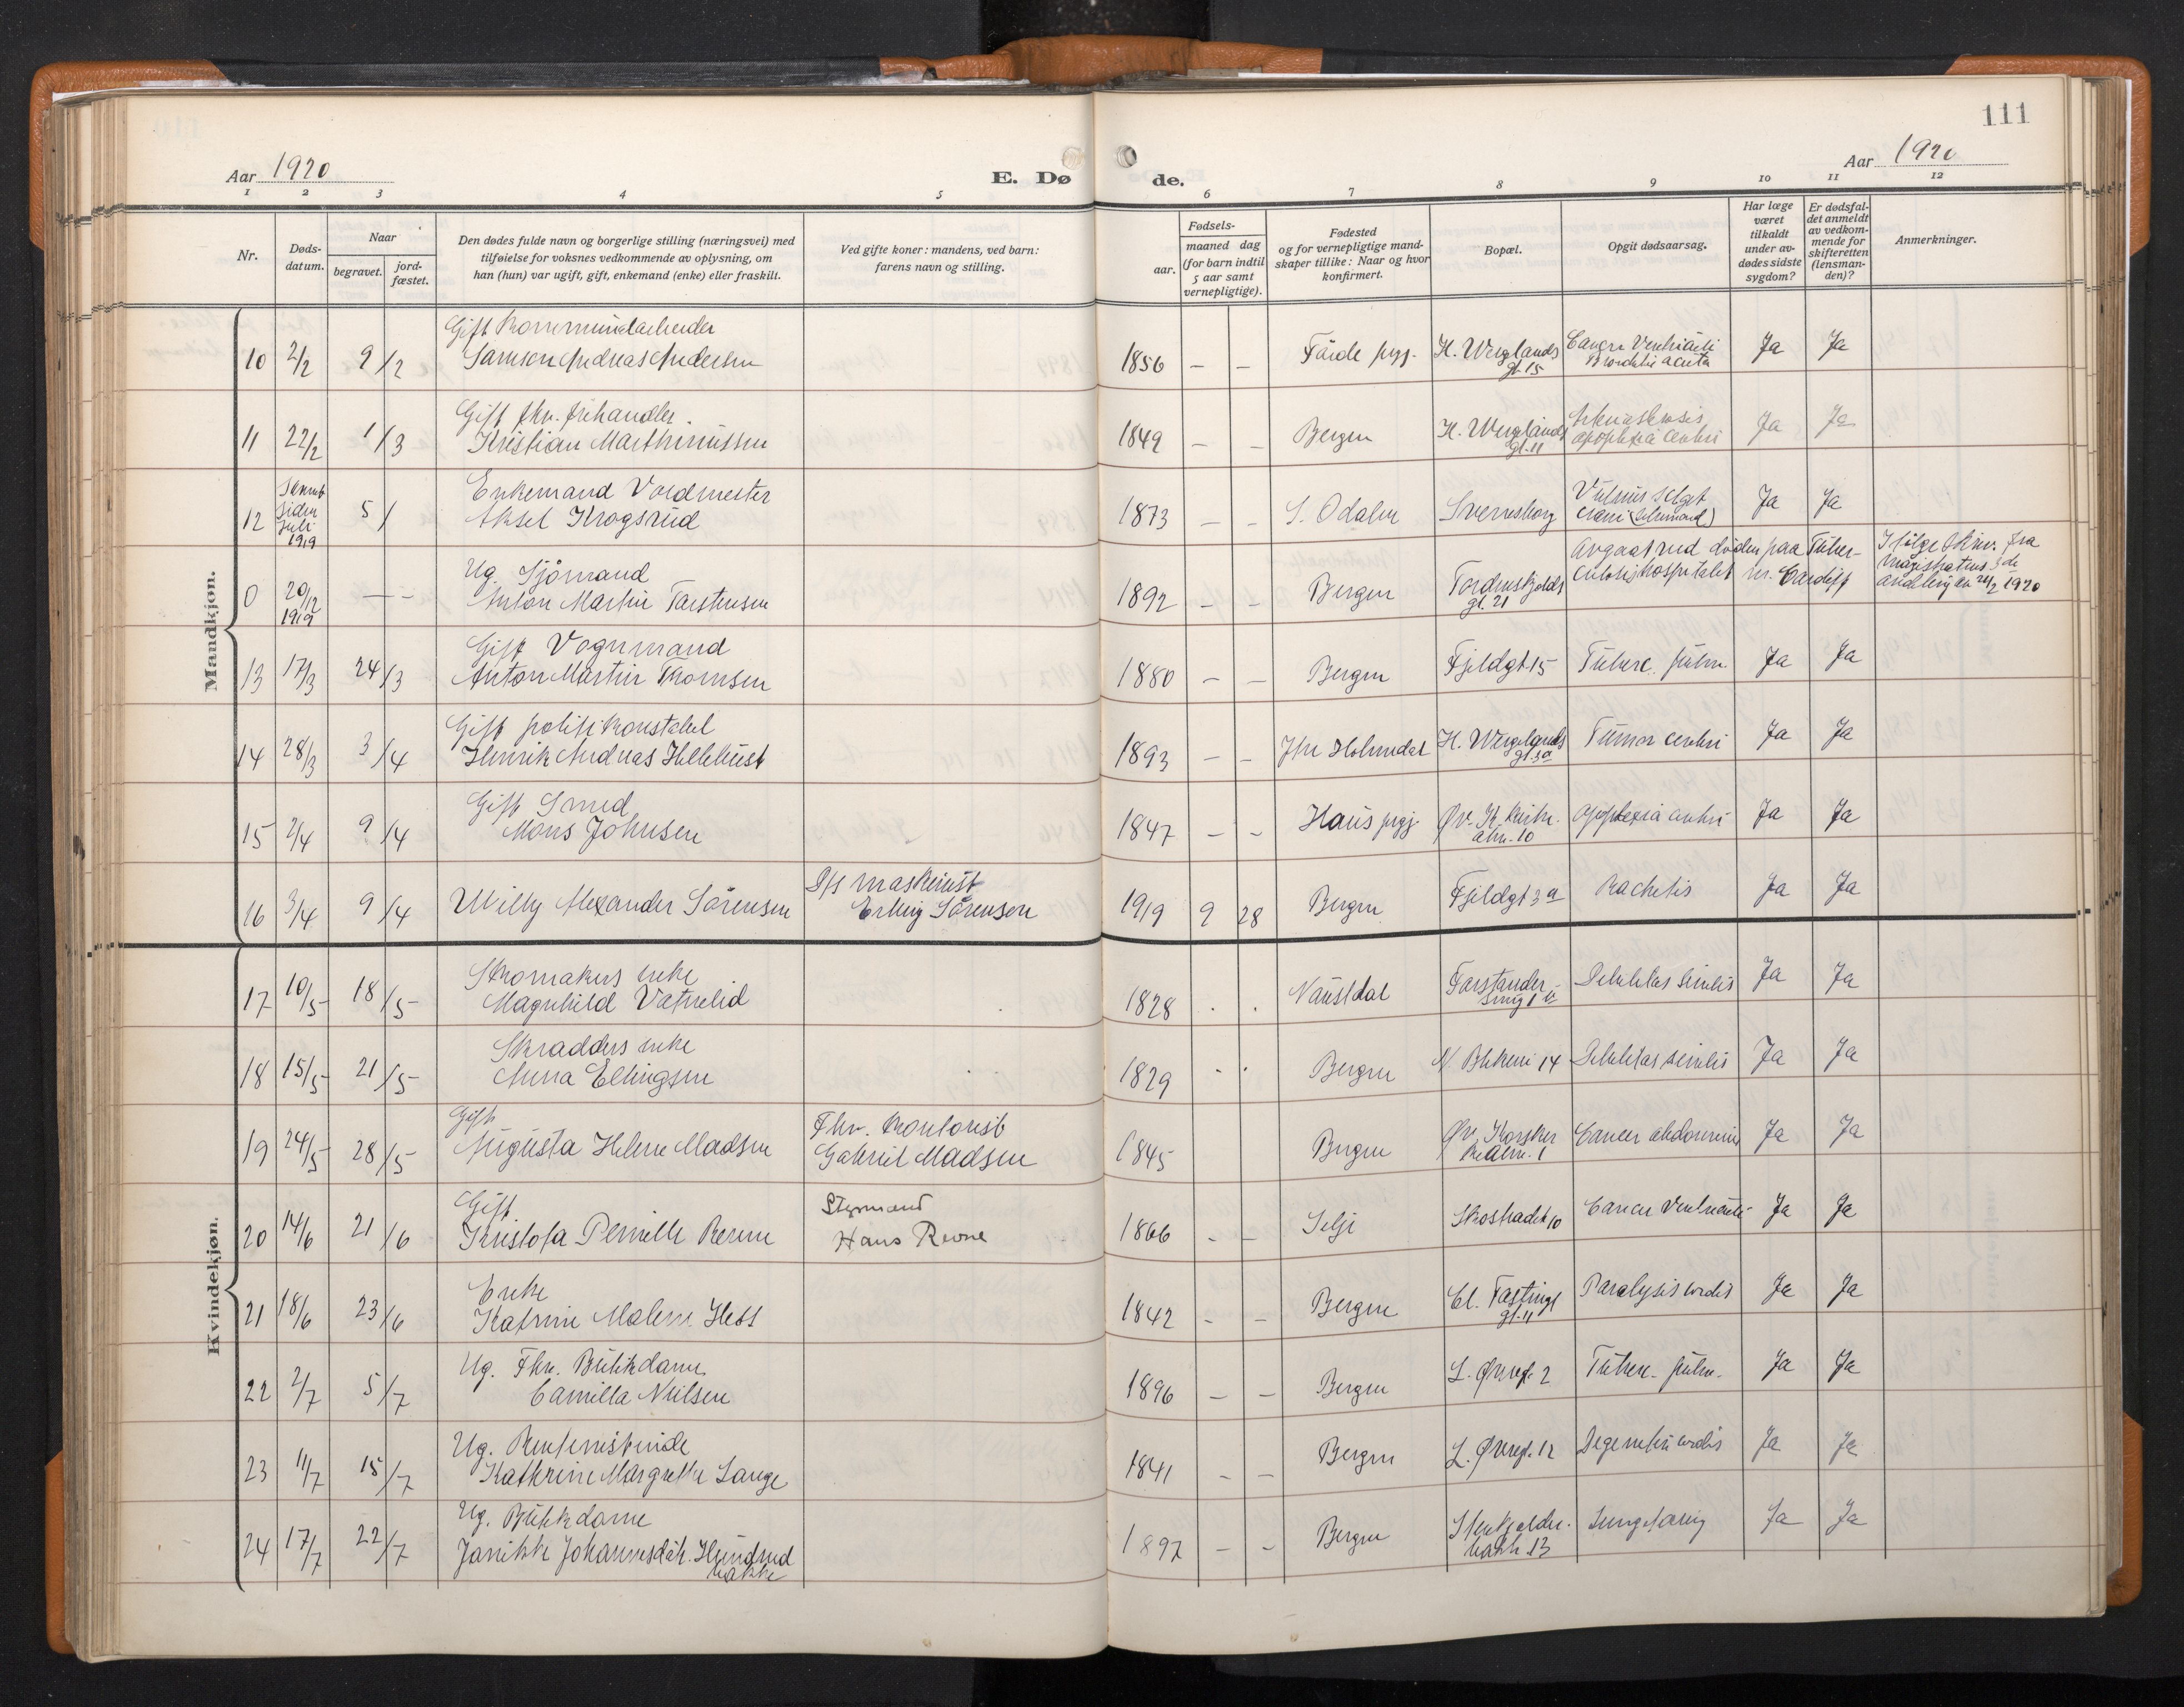 111
Aar 1920
E. Dø
de.
Aar 1920
1 2 3 4 5 6 7 8 9 10 11 12
Nr.
Døds-
datum.
Naar
begravet.
jord-
fæstet.
Den dødes fulde navn og borgerlige stilling (næringsvei) med
tilføielse for voksnes vedkommende av oplysning, om
han (hun) var ugift, gift, enkemand (enke) eller fraskilt.
Ved gifte koner: mandens, ved barn:
farens navn og stilling.
Fødsels-
aar.
maaned dag
(for barn indtil
5 aar samt
vernepligtige).
Fødested
og for vernepligtige mand-
skaper tillike: Naar og hvor
konfirmert.
Bopæl.
Opgit dødsaarsag.
Har læge
været
tilkaldt
under av-
dødes sidste
sygdom?
Er dødsfal-
det anmeldt
av vedkom-
mende for
skifteretten
(lensman-
den)?
Anmerkninger.
Mandkjøn.
Gift
10 2/2 9/2 Samson Andreas Andersen 1856 — — Førde prgj. H. Werglands Cancer Ventriculi Ja Ja
gt. 15 Bronchitis acuta
Gift fhv.
11 22/2 1/3 Kristian Marthinussen 1849 — — Bergen H. Werglands apoplexia cerebri Ja Ja
gt. 11
Enkemand Voldmester
12 siden juli 1919 5/ Aksel Krogsrud 1873 — — S. Odalen Sverresborg Ja Ja
Ug. Sjømand
0 20/12 1919 — — Anton Martin Torstensen 1892 — — Bergen Tordenskjolds
gt. 21
Avgaat ved døden paa Tuber-
culosishospitalet nr. Cardiff
Ifølge skriv. fra
Magistratens 3de
avdeling av 24/2 1920
Gift Vognmand
13 17/3 24/3 Anton Martin Thomsen 1880 — — Bergen Fjeldgt 15 Tuberc. pulm Ja Ja
Gift politikonstabel
14 28/3 3/4 Henrik Andreas Hellekust 1893 — — H. Wergelands Tumor cerebri Ja Ja
gt. 3a
Gift Smed
15 2/4 9/4 Mons Johnsen 1847 — — Haus prgj. Øv. K. kirke. apoplexia cerebri Ja Ja
alm. 10
16 3/4 9/4 Willy Alexander Sörensen maskinist
Erling Sörensen 1919 9 28 Bergen Fjeldgt 3a Rachitis Ja Ja
Kvindekjøn.
Skomakers enke
17 10/5 18/5 Magnhild Vatnelid 1828 . . Naustdal Forstander- Debilitas senilis Ja Ja
Skradders enke
18 15/5 21/5 Anna Ellingsen 1829 . . Bergen N. Blekevei 14 Debilitas senilis Ja Ja
Gift Fhv. Kontorist
19 24/5 28/5 Augusta Helene Madsen Gabriel Madsen 1845 Bergen Øv. Korskir Cancer abdominis Ja Ja
ke Alm. 1
Gift Styrmand
20 14/6 21/6 Kristofa Pernille Revne Hans Revne 1866 - - Selje Skostredet 10 Cancer Ventriculi Ja Ja
Enke
21 18/6 23/6 Katrine Malene Hess 1842 - - Bergen Cl. Fastings Paralysis cordis Ja Ja
gt. 11
Ug. Fhv. Butikdame
22 2/7 5/7 Camilla Nilsen 1896 — — Bergen L. Øvregt. 2 Tuberc. pulm. Ja Ja
Ug. Rentenistinde
23 11/7 15/7 Kathrine Margrethe Lange 1841 - - Bergen L. Øvregt. 12 Degeneratio cordis Ja Ja
Ug. Butikkdame
24 17/7 22/7 Jannikke Johannesdtr. Hundsnd
bakke 1897 — - Bergen Stenkjelder. Ja Ja
bakk. 13